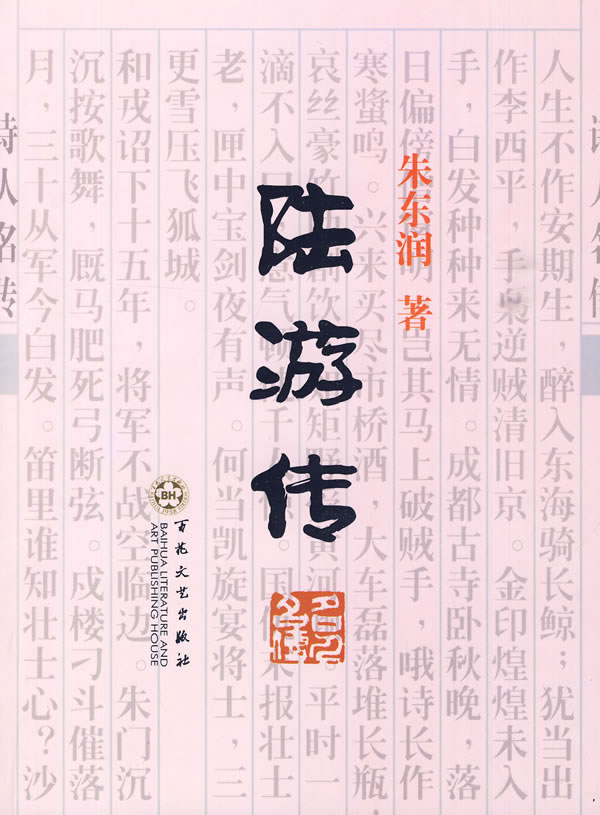 陆游传
朱东润 著
百花文艺出版社
BAIHUA LITERATURE AND
ART PUBLISHING HOUSE
BH
诗人名传
人生不作安期生，醉入东海骑长鲸；犹当出
作李西平，手枭逆贼清旧京。金印煌煌未入
手，白发种种来无情。成都古寺卧秋晚，落
日偏傍 明 岂其马上破贼手，哦诗长作
寒螀鸣。兴来买尽市桥酒，大车磊落堆长瓶，
哀丝豪 饮 如矩野 黄河 。平时一
滴不入口 意气 千 。国 未报壮士
老，匣中宝剑夜有声。何当凯旋宴将士，三
更雪压飞狐城。
和戎诏下十五年，将军不战空临边。朱门沉
沉按歌舞，厩马肥死弓断弦。戍楼刁斗催落
月，三十从军今白发。笛里谁知壮士心？沙
诗人名传